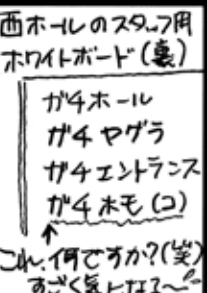 西ホールのスタッフ用
ホワイトボード(裏)
ガチホール
ガチヤグラ
ガチエントランス
ガチホモ(コ)
↑
これ、何ですか?(笑)
すごく気になる〜